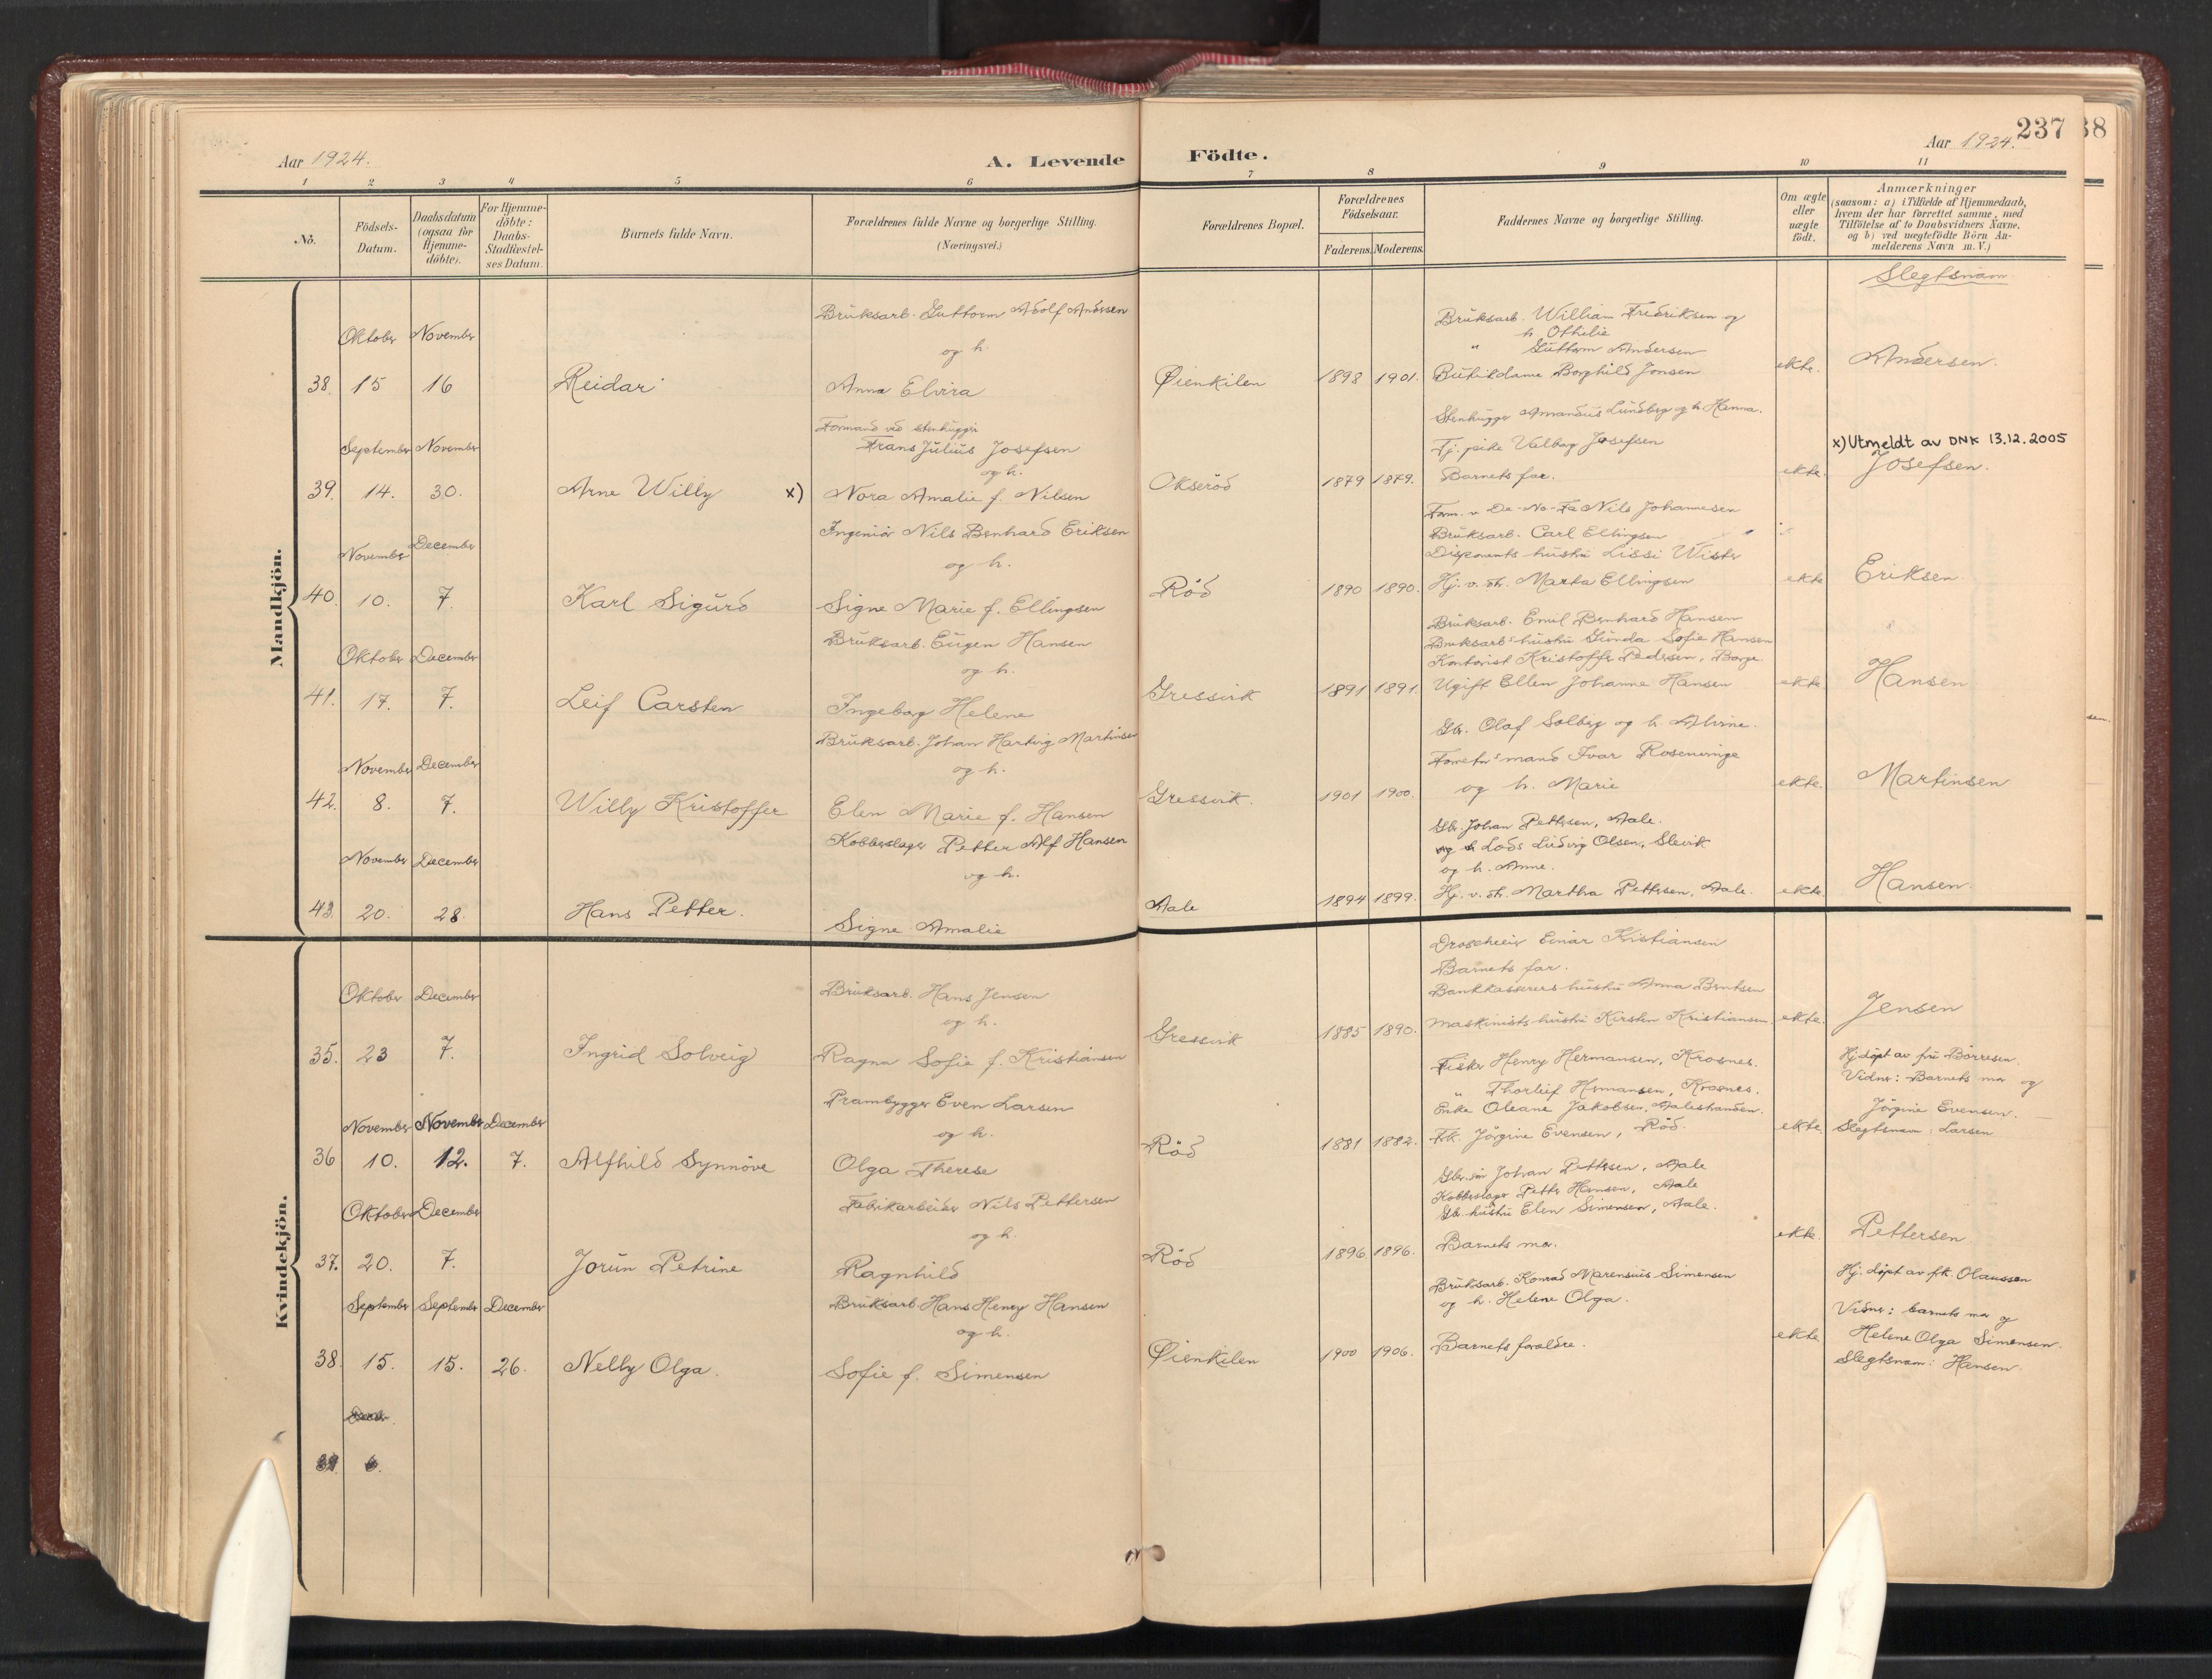 Aar 1924.
A. Levende Födte.
Aar 1924.
237
38
1 2 3 4 5 6 7 8 9 10 11
No.
Födsels-Datum.
Daabsdatum (ogsaa for Hjemme-döbte).
For Hjemme-döbte: Daabs-Stadfæstel-ses Datum.
Barnets fulde Navn.
Forældrenes fulde Navne og borgerlige Stilling.
(Næringsvei.)
Forældrenes Bopæl.
Forældrenes Födselsaar.
Faderens. Moderens.
Faddernes Navne og borgerlige Stilling.
Om ægte eller uægte födt.
Anmærkninger
(saasom: a) i Tilfælde af Hjemmedaab, hvem der har forrettet samme, med Tilföielse af to Daabsvidners Navne, og b) ved uægtefödte Börn An-melderens Navn m. V.)
Slegtsnavn
Mandkjön.
Oktober November
38. 15 16
Reidar
Bruksarb. Guttorm Adolf Andersen
og h.
Anna Elvira
Øienkilen
1898 1901.
Bruksarb. William Fredriksen og
h. Othilie
" Guttorm Andersen
Butikdame Borghild Jonsen
ekte.
Andersen.
September November
39. 14. 30.
Arne Willy x)
Formand ved stenhuggeri
Frans Julius Josefsen
og h.
Nora Amalie f. Nilsen
Okseröd
1879 1879.
Stenhugger Amandus Lundberg og h. Hanna.
Tj. pike Valborg Josefsen
Barnets far.
ekte.
x) Utmeldt av DNK 13.12.2005
Josefsen.
November December
40. 10. 7.
Karl Sigurd
Ingeniör Nils Bernhard Eriksen
og h.
Signe Marie f. Ellingsen
Röd
1890 1890.
Form. v. De-No-Fa Nils Johannesen
Bruksarb. Carl Ellingsen
Disponents hustru Lissi Wister
Hj. v. dtr. Marta Ellingsen
ekte
Eriksen
Oktober December
41. 17. 7.
Leif Carsten
Bruksarb. Eugen Hansen
og h.
Ingeborg Helene
Gressvik
1891 1891.
Bruksarb. Emil Bernhard Hansen
Bruksarb's hustru Gunda Sofie Hansen
Kontorist Kristoffer Pedersen, Borge.
Ugift Ellen Johanne Hansen
ekte
Hansen
November December
42. 8. 7.
Willy Kristoffer
Bruksarb. Johan Hartvig Martinsen
og h.
Elen Marie f. Hansen
Gressvik.
1901 1900.
Gbr. Olaf Solberg og h. Alvine.
Ivar Rosenvinge
og h. Marie
ekte.
Martinsen
November December
43. 20. 28.
Hans Petter.
Kobberslager Petter Alf Hansen
og h.
Signe Amalie
Aale
1894 1899.
Gbr. Johan Pettersen, Aale.
Lods Ludvig Olsen, Slevik
og h. Anne.
Hj. v. dtr. Martha Pettersen, Aale.
ekte.
Hansen.
Kvindekjön.
Oktober December
35. 23 7.
Ingrid Solveig
Bruksarb. Hans Jensen
og h.
Ragna Sofie f. Kristiansen
Gressvik
1885 1890.
Droscheeier Einar Kristiansen
Barnets far.
Bankkasserers hustru Anna Berntsen
Maskinists hustru Kirsten Kristiansen
ekte.
Jensen
November November December
36 10. 12. 7.
Alfhild Synnöve
Prambygger Even Larsen
og h.
Olga Therese
Röd
1881 1882.
Fisker Henry Hermansen, Krosnes.
" Thorleif Hermansen, Krosnes.
Enke Oleane Jakobsen, Aalestranden.
Frk. Jörgine Evensen, Röd.
ekte
Hj. döpt av fru Börresen.
Vidner: Barnets mor og
Jörgine Evensen.
Slegtsnavn: Larsen
Oktober December
37. 20. 7.
Jorun Petrine
Fabrikarbeider Nils Pettersen
og h.
Ragnhild
Röd
1896 1896.
Gbr. sön Johan Pettersen, Aale
Kobberslager Petter Hansen, Aale
Gbr. hustru Elen Simensen, Aale.
Barnets mor.
ekte.
Pettersen
September September December
38. 15. 15. 26.
Nelly Olga.
Bruksarb. Hans Henry Hansen
og h.
Sofie f. Simensen
Øienkilen
1900 1906.
Bruksarb. Konrad Marensius Simensen
og h. Helene Olga.
Barnets foreldre.
ekte
Hj. döpt av frk. Olaussen
Vidner: barnets mor og
Helene Olga Simensen.
Slegtsnavn: Hansen.
39. 6.